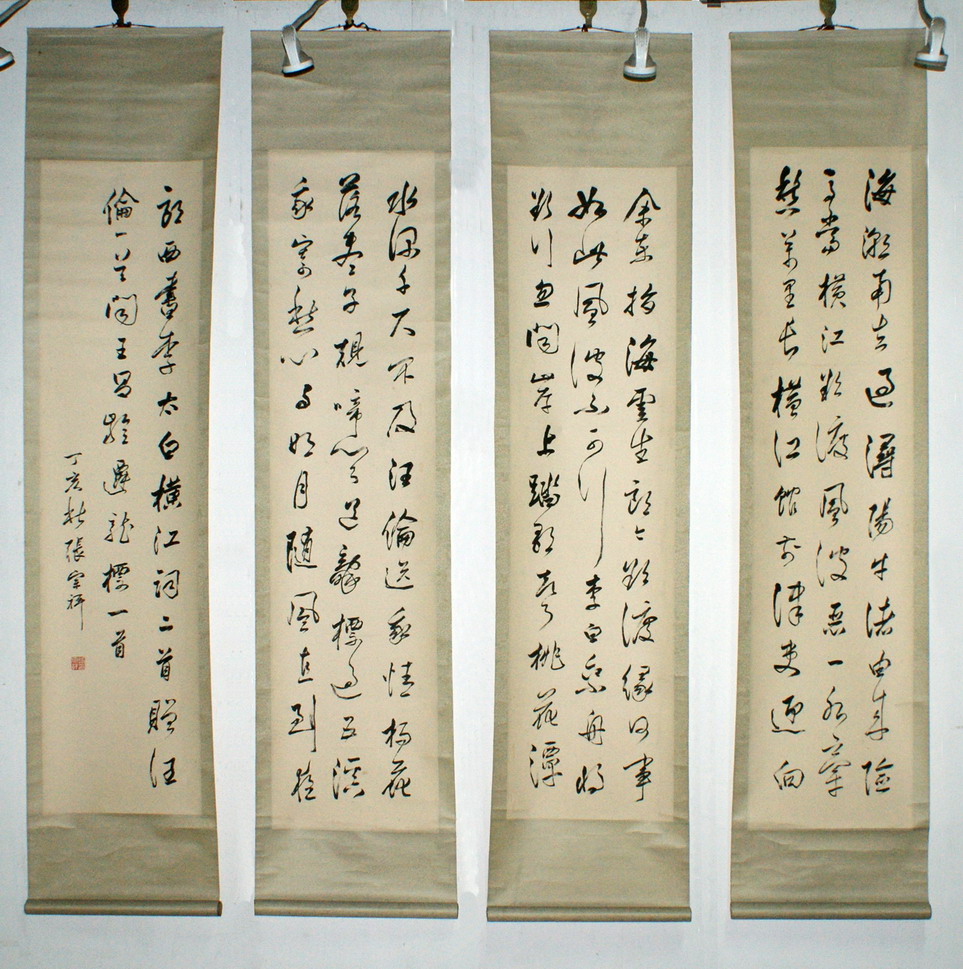 海潮南去過潯陽牛渚由來險
馬當橫江欲渡風波惡一水牽
愁萬里長橫江館前津吏迎向
余東指海雲生郎今欲渡緣何事
如此風波不可行李白乘舟將
欲行忽聞岸上踏歌聲桃花潭
水深千尺不及汪倫送我情楊花
落盡子規啼聞道龍標過五溪
我寄愁心與明月隨風直到夜
郎西書李太白橫江詞二首贈汪
倫一首聞王昌齡遷龍標一首
丁亥秋張宗祥